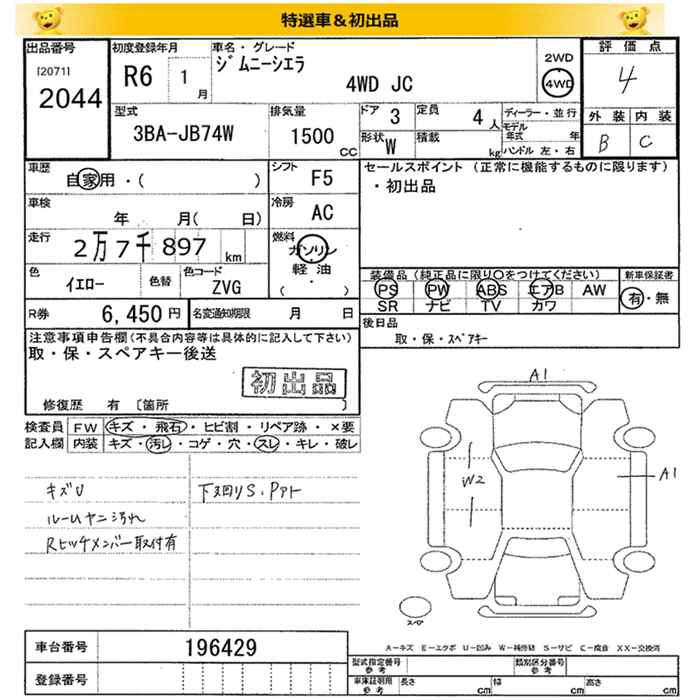 特選車＆初出品
出品番号 初度登録年月 車名・グレード 評価点
[2071] R6 1月 ジムニーシエラ 2WD 4
2044 4WD JC 4WD
型式 排気量 ドア 3 定員 4人 ディーラー・並行 外装 内装
3BA-JB74W 1500cc 形状 W 積載 kg モデル年式 年 B C
ハンドル 左・右
車歴 シフト F5 セールスポイント (正常に機能するものに限ります)
自家用・( ) ・初出品
車検 年 月( 日) 冷房 AC
走行 2万7千897km 燃料 ガソリン
軽油
( ・ )
色 イエロー 色替 色コード ZVG 装備品(純正品に限り○をつけてください) 新車保証書
PS PW ABS エアB AW 有・無
R券 6,450円 名変通知期限 月 日 SR ナビ TV カワ
注意事項申告欄(不具合内容等は具体的に記入して下さい) 後日品
取・保・スペアキー後送 取・保・スペアキー
初出品
修復歴 有 〔箇所 〕
検査員 FW キズ・飛石・ヒビ割・リペア跡・×要
記入欄 内装 キズ・汚レ・コゲ・穴・スレ・キレ・破レ
キズU 下廻りS・Pアト
ルームヤニ汚れ
Rヒッチメンバー取付有
A1
W2
A1
スペア
A－キズ E－エクボ U－凹み W－補修跡 S－サビ C－腐食 XX－交換済
車台番号 196429
登録番号
型式指定番号 参考 類別区分番号 参考
車庫証明用 参考 長さ cm 幅 cm 高さ cm